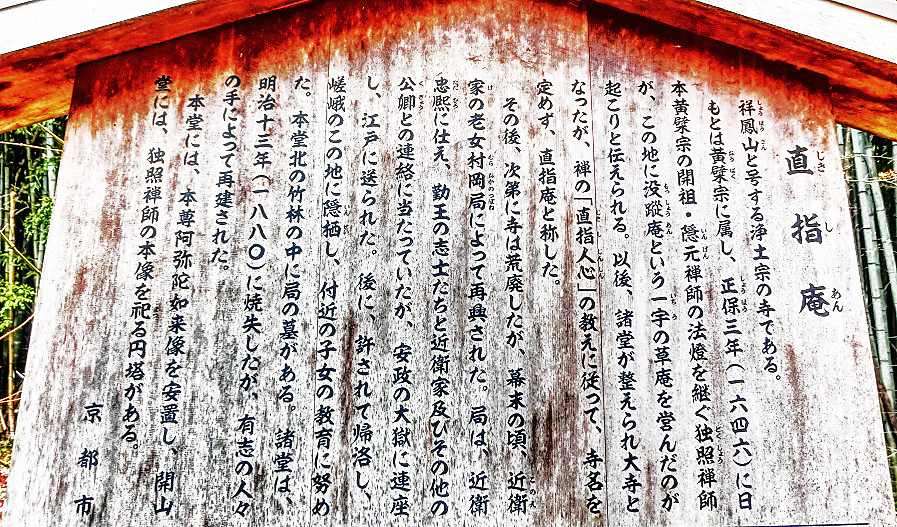 直指庵
祥鳳山と号する浄土宗の寺である。
もとは黄檗宗に属し、正保三年(一六四六)に日
本黄檗宗の開祖・隠元禅師の法燈を継ぐ独照禅師
が、この地に没蹤庵という一宇の草庵を営んだのが
起こりと伝えられる。以後、諸堂が整えられ大寺と
なったが、禅の「直指人心」の教えに従って、寺名を
定めず、直指庵と称した。
その後、次第に寺は荒廃したが、幕末の頃、近衛
家の老女村岡局によって再興された。局は、近衛
忠熙に仕え、勤王の志士たちと近衛家及びその他の
公卿との連絡に当たっていたが、安政の大獄に連座
し、江戸に送られた。後に、許されて帰洛し、
嵯峨のこの地に隠栖し、付近の子女の教育に努め
た。本堂北の竹林の中に局の墓がある。諸堂は、
明治十三年(一八八〇)に焼失したが、有志の人々
の手によって再建された。
本堂には、本尊阿弥陀如来像を安置し、開山
堂には、独照禅師の本像を祀る円塔がある。
京都市